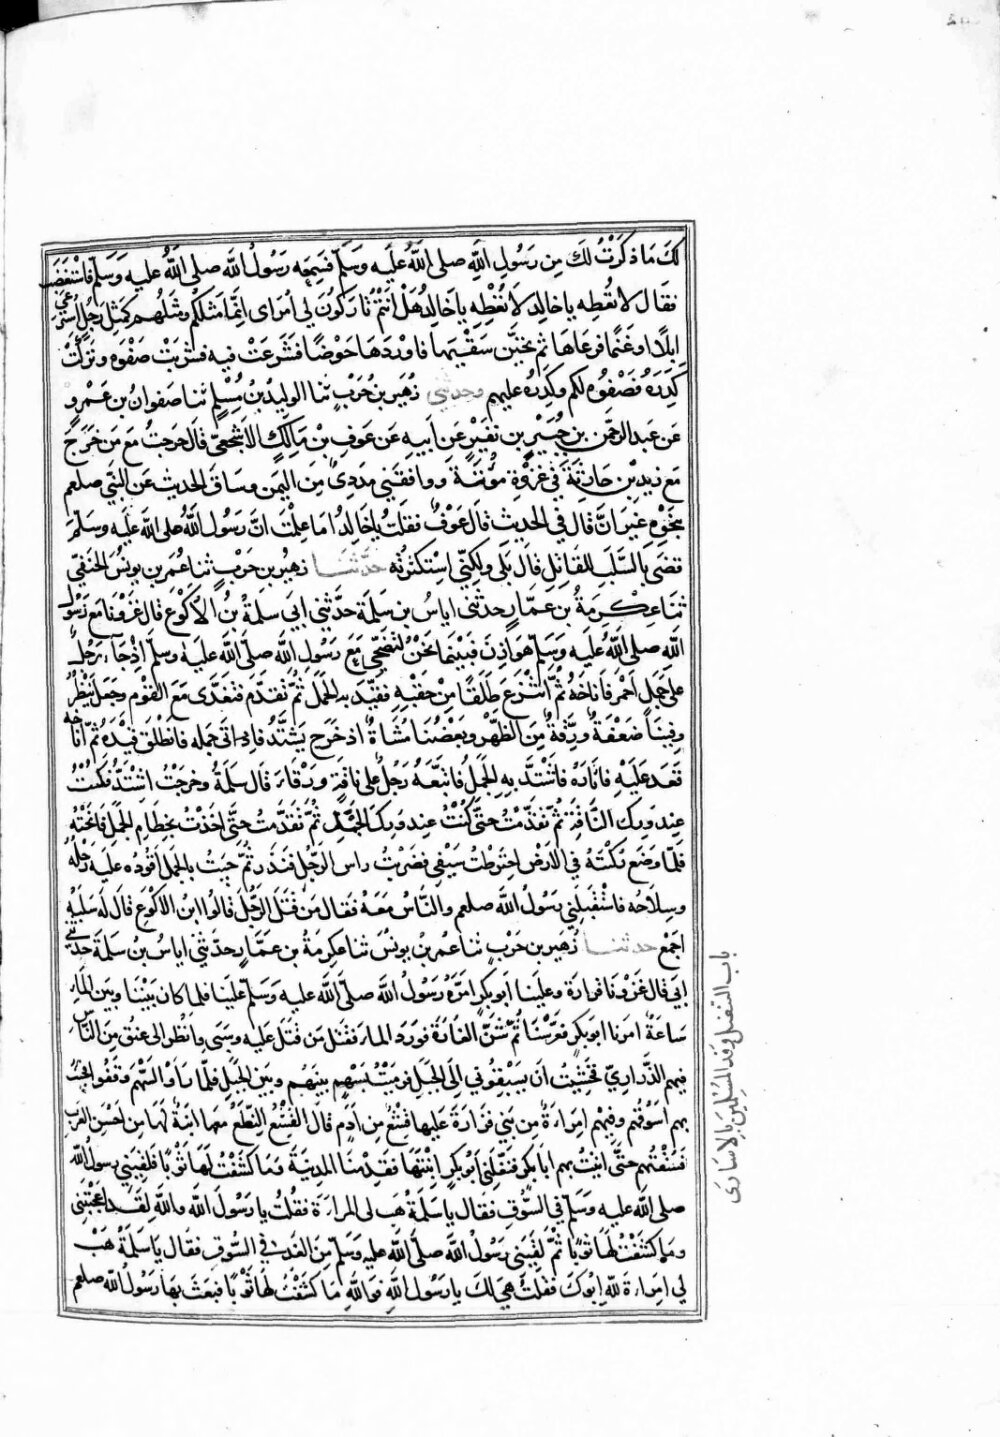 لَكَ مَا ذَكَرْتُ لَكَ مِن رَسُولِ اللَّهِ صلى اللَّهُ عَلَيه وَسَلّم فَسَمِعَه رَسُولُ اللَّه صلى اللَّهُ عليه وَسَلّم فاسْتغضَبَ
فقَال لا تُعْطِه يا خالِد لَا تُعْطِهِ يا خَالِدُ هَلْ انتُمْ تَارِكُونَ لي أُمَرَاى إنَّما مَثَلكُم ومَثَلُهم كَمَثِل رَجُلٍ اسْتُرْعِيَ
إبلًا اوغَنمًا فرعَاهَا ثم تحَيَّن سَقْيَها فاوْردَهَا حَوْضًا فشَرعَتْ فيه فشرِبَتْ صَفْوَه وتركَتْ
كَدَرَهُ فصَفْوُه لكم وكَدَرُه عليهم وحدثني زُهَير بن حُرْبٍ ثنا الوليدُ بن مسْلِم ثنا صَفوانُ بن عَمْرٍو
عَن عبد الرّحمن بن جُبَيْرِ بنِ نفَيْرٍ عَن ابيهِ عَن عَوفِ بْن مَالِكٍ الاشْجعِيّ قال خرَجتُ مَع مَن خَرَجَ
مَع زيدِ بْن حَارثةَ في غزْوةِ مؤتةَ ورافقَني مَدَدِيٌّ مِن اليمَن وسَاق الحديث عَن النّبي صلعم
بنحْوِه غيرَ انَّه قال في الحديث قال عَوْف فقلتُ يا خَالِدُ امَا علِمْتَ انَّ رَسُولَ اللَّه صلى اللَّه عَلَيه وسَلّمَ
قضَى بالسَّلَب للقَاتِل قال بَلى ولكِنّي اسْتكثرتُه حَدَّثنَا زهَيْر بن حَرْبٍ ثنا عُمر بن يونُسَ الحنَفيّ
ثنَا عِكْرِمَةُ بن عَمّارٍ حدثني اياسُ بن سَلمَةَ حدّثني ابي سَلمةُ بْنُ الأكْوَعِ قال غَزَوْنا مَع رَسُولِ
اللَّه صلى اللَّهُ عَلَيه وَسَلّم هوَازِنَ فَبَيْنَما نَحْنُ نتَضَحّى مَعَ رَسُولِ اللَّه صلّى اللَّه عَليهِ وسَلّم إذْ جَاءَ رَجُلٌ
على جَملٍ احْمر فأناخَهُ ثمَّ انْتزَعَ طَلَقًا مِنْ حقَبِه فقيَّد به الجَمَلَ ثُمّ تقدّم فتغَدَّى مَعَ القَوْم وجعَل يَنْظُرُ
وفينَا ضَعْفَةٌ ورِقّةٌ مِّنَ الظَهْرِ وبَعْضُنا مُشَاةٌ اذ خرَج يَشتَدُّ فاتى جَمَله فانطلق قَيْدَه ثمّ اناخه
وقعَد عليْهِ فأثارَهُ فاشْتدَّ به الجمَلُ فاتَّبَعَهُ رَجلٌ على ناقَةٍ وَرْقَاءَ قال سَلمَةُ وخرجْتُ اشتَدُّ فكُنتُ
عِند وَرِك النّاقةِ ثُمّ تقدّمْتُ حتّى كُنتُ عِند وَرِكِ الجَملِ ثُمّ تقدّمتُ حتّى اخذْتُ بخِطامِ الجمَل فأنخْتُه
فلمّا وضَع رُكبتَه في الارْض اخترطْتُ سَيْفي فضَربْتُ راس الرّجُل فندَر ثمّ جيتُ بالجمَل اقُودُه عليْه رَحْلُه
وسِلاحُه فاسْتقبلَني رَسُولُ اللَّه صلعم والنَّاسُ معَهُ فقال مَن قتَلَ الرّجُل قالُوا ابن الاكوَعِ قال له سَلبُه
اجمَع حدثنا زُهَير بن حَرْبٍ ثنا عمر بن يونُسَ ثنا عِكرمَةُ بن عَمّارٍ حدّثني اياسُ بن سَلمَةَ حدثني
ابي قال غزَوْنا فزارةَ وعلينا ابُو بكرٍ امّرهُ رَسُولُ اللَّه صلّى اللَّه عليه وَسَلّم عَلينا فلما كان بيْننا وبين الماء
سَاعَةٌ امرنا ابو بكر فعرّسْنا ثُمّ شنَّ الغارَةَ فورَد الماء فقتَل مَن قتل عَليه وسَبَى وانْظُر الى عنُقٍ مِن النّاس
فيهم الذَّراريّ فخشِيتُ ان يسْبِقُوني إلَى الجبَل فرميْتُ بسَهْمٍ بينَهم وبَين الجبَل فلمّا راوْا السّهْم وقفُوا فجئتُ
بهم اسُوقُهم وفيهم امراةٌ مِن بَني فزارةَ عليها قشْعٌ مِن ادَمٍ قال القَشْعُ النّطَعُ معها ابْنةٌ لها مِن احْسَنِ العرب
فسُقْتُهم حتّى اتيتُ بهم ابا بكر فنفّلني ابُو بكرٍ ابْنتَها فقدِمْنا المدِينة ومَا كشَفْتُ لهَا ثوْبًا فلقيَني رسول اللَّه
صلى اللَّه عليه وسلّم في السُّوق فقال يا سَلمَةُ هَب لى المراةَ فقُلتُ يا رَسُولَ اللَّه واللَّهِ لقد اعجبَتْني
ومَا كشَفْتُ لهَا ثوْبًا ثُمّ لقيَني رَسُولُ اللَّه صلّى اللَّه عليه وسَلّم مِنَ الغَد في السُّوقِ فقال يَا سَلمةُ هَبْ
لي امراة للَّه ابُوكَ فقلتُ هيَ لكَ يا رَسُول اللَّهِ فواللَّهِ مَا كشَفْتُ لها ثوْبًا فبَعَثَ بها رَسُولُ اللَّه صلعم
باب التنفيل وفداء المسْلمين بالاسَارَى